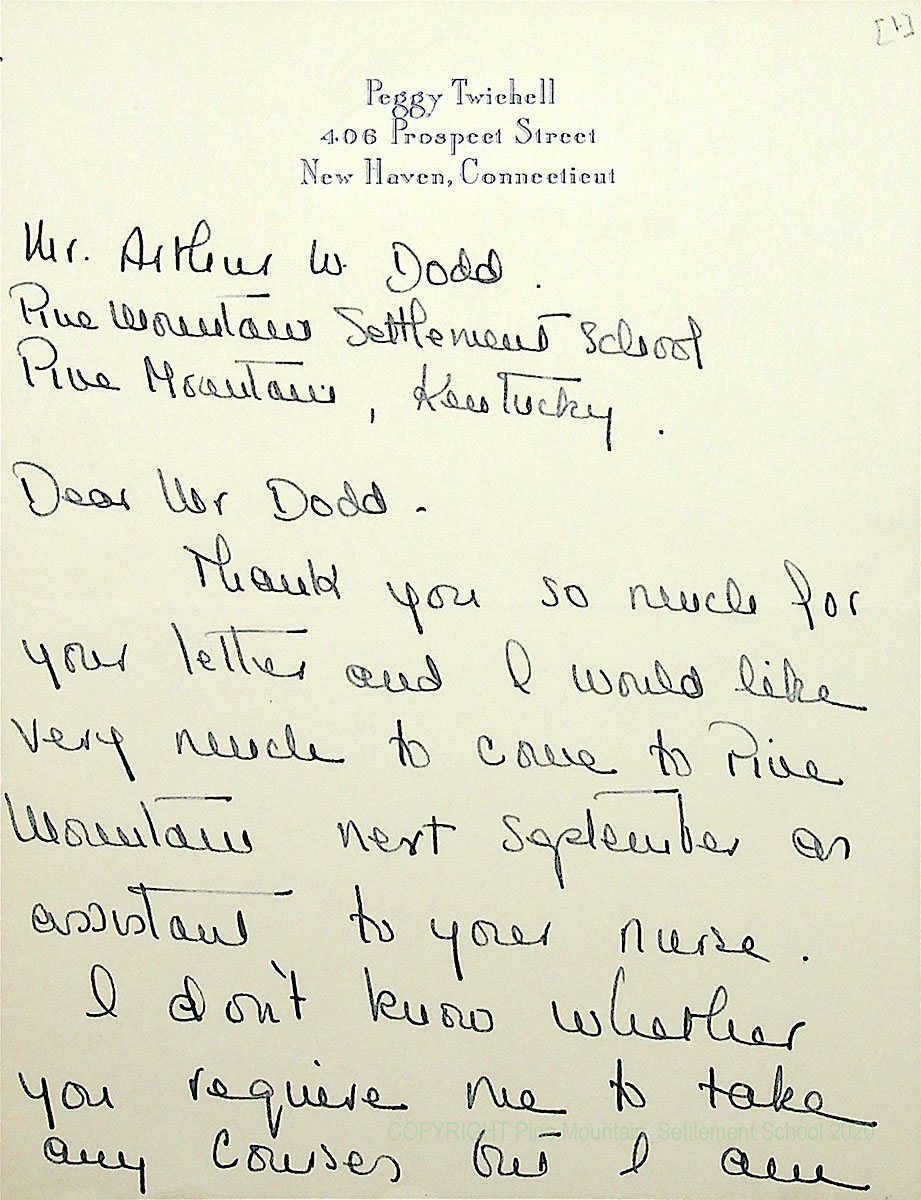 [1]
Peggy Twichell
406 Prospect Street
New Haven, Connecticut
Mr. Arthur W. Dodd.
Pine Mountain Settlement School
Pine Mountain, Kentucky.
Dear Mr Dodd.
Thank you so much for
your letter and I would like
very much to come to Pine
Mountain next September as
assistant to your nurse.
I don't know whether
you require me to take
COPYRIGHT Pine Mountain Settlement School 2020
any courses but I am